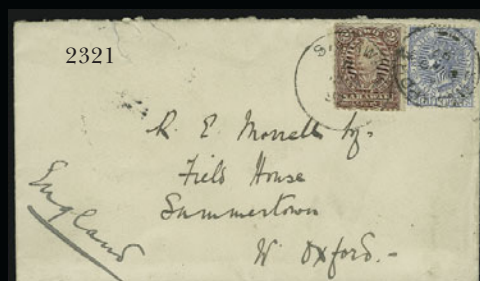 2321
R. E. Morrell Esq.
Field House
Summertown
Nr Oxford.-
England